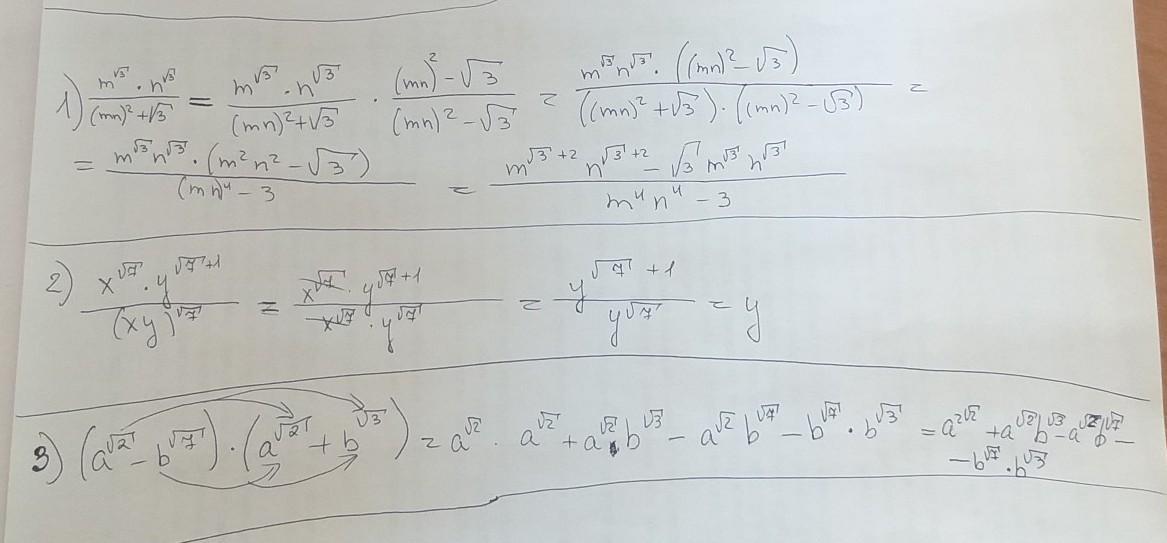 1) m^√3 · n^√3 / (mn)² + √3 = m^√3 · n^√3 / (mn)² + √3 · (mn)² - √3 / (mn)² - √3 = m^√3 n^√3 · ((mn)² - √3) / ((mn)² + √3) · ((mn)² - √3) =
= m^√3 n^√3 · (m² n² - √3) / (mn)⁴ - 3 = m^√3+2 n^√3+2 - √3 m^√3 n^√3 / m⁴ n⁴ - 3
2) x^√7 · y^√7+1 / (xy)^√7 = x^√7 · y^√7+1 / x^√7 · y^√7 = y^√7+1 / y^√7 = y
3) (a^√2 - b^√7) · (a^√2 + b^√3) = a^√2 · a^√2 + a^√2 · b^√3 - a^√2 b^√7 - b^√7 · b^√3 = a^2√2 + a^√2 b^√3 - a^√2 b^√7 -
- b^√7 · b^√3